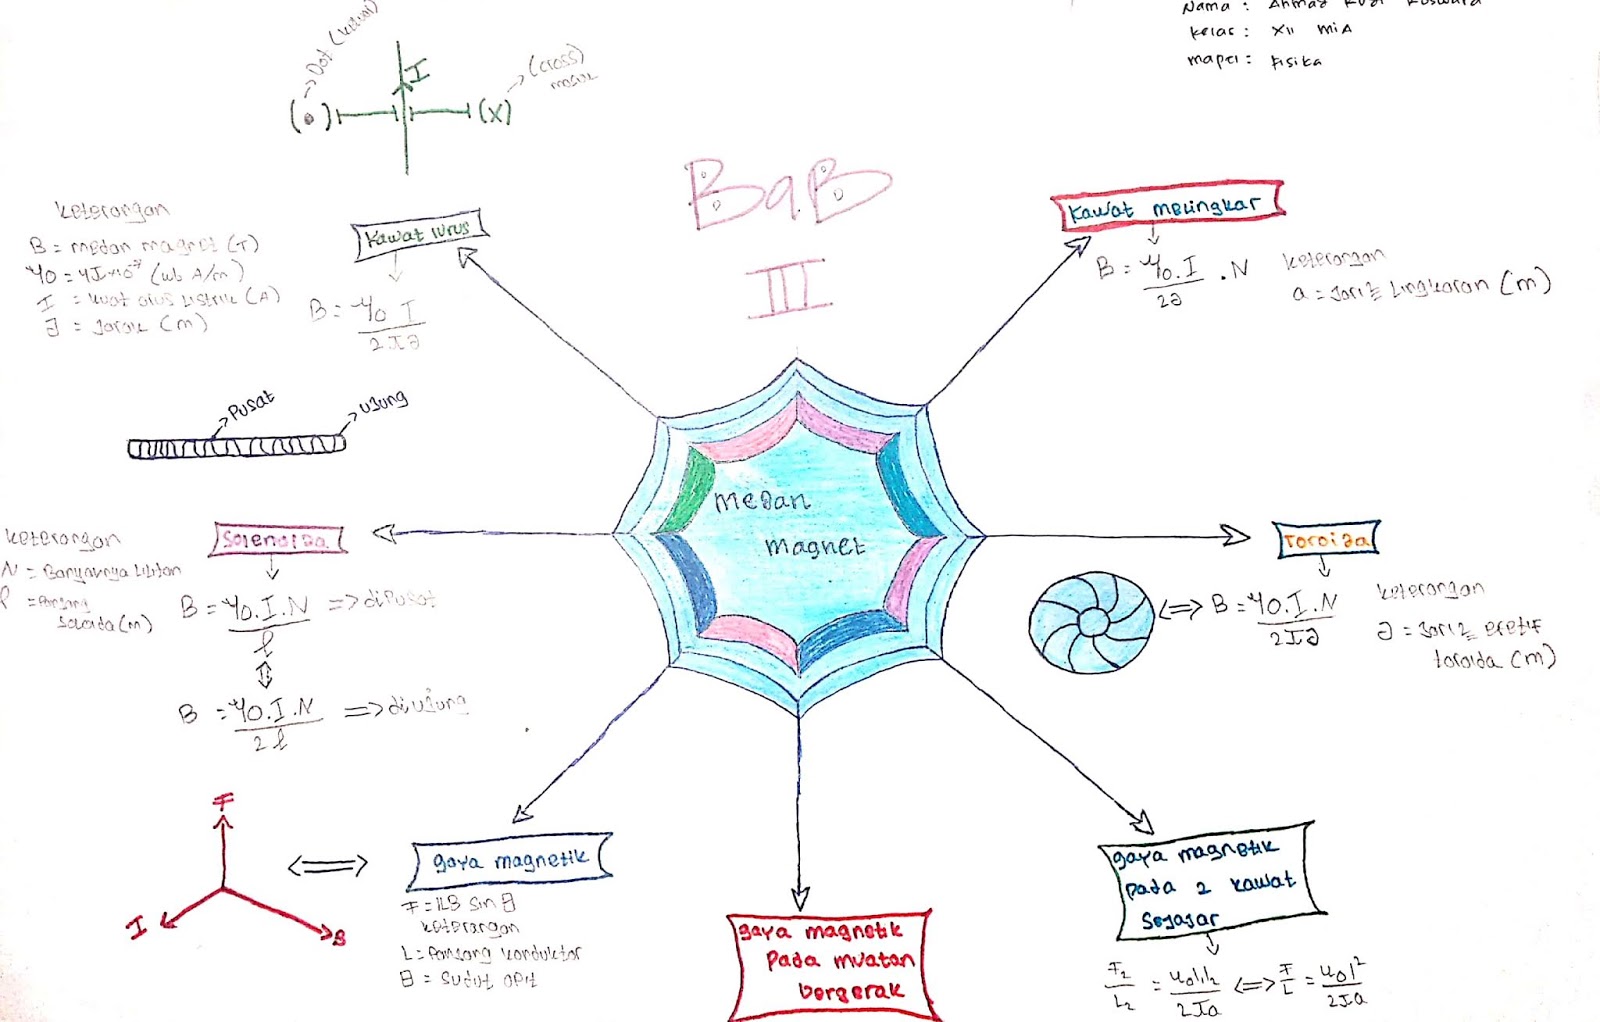 Nama : Ahmad
Kelas : XII MIA
mapel : Fisika
BAB
III
Dot (keluar)
I
(•)
(X)
(cross)
masuk
Kawat lurus
B = μo I
2πa
Keterangan
B = medan magnet (T)
μo = 4π×10⁻⁷ (wb A/m)
I = kuat arus listrik (A)
a = Jarak (m)
Kawat melingkar
B = μo.I . N
2a
Keterangan
a = Jari2 Lingkaran (m)
Pusat
ujung
Solenoida
Keterangan
N = Banyaknya Lilitan
l = Panjang
Soleoida (m)
B = μo.I.N => diPusat
l
B = μo.I.N => diujung
2l
medan
magnet
Toroida
<=> B = μo.I.N
2πa
Keterangan
a = Jari2 efetif
toroida (m)
F
I
B
gaya magnetik
F = ILB sin θ
keterangan
L = Panjang konduktor
θ = Sudut apit
gaya magnetik
Pada muatan
bergerak
gaya magnetik
pada 2 kawat
Sejajar
F2/L2 = μoI1I2/2πa <=> F/L = μoI²/2πa